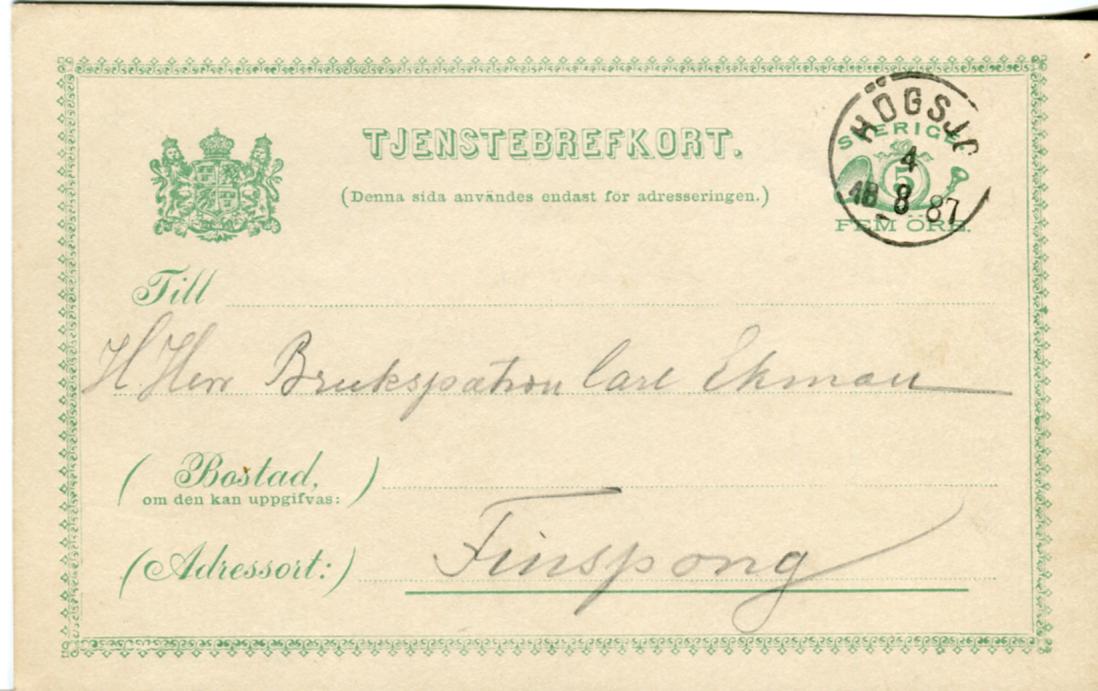 TJENSTEBREFKORT.
(Denna sida användes endast för adresseringen.)
SVERIGE
5
FEM ÖRE.
HÖGSJÖ
4
18 8 87
Till
H. Herr Brukspatron Carl Ekman
(Bostad,)
om den kan uppgifvas:
(Adressort:) Finspong